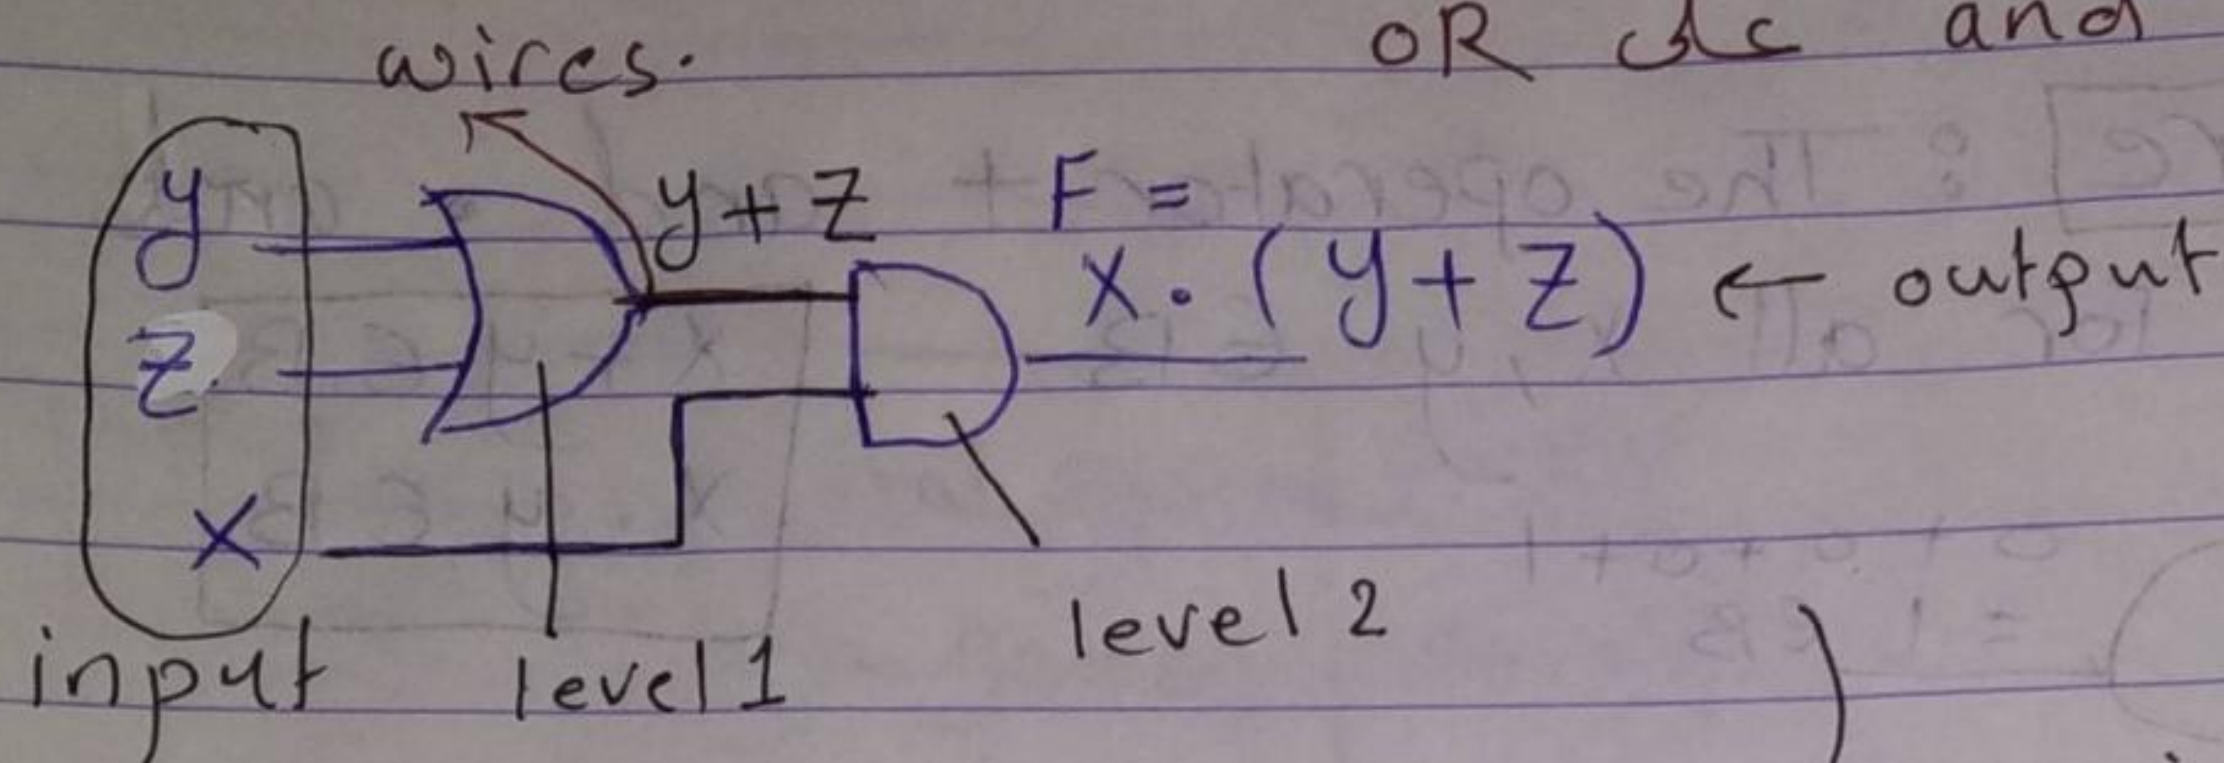 wires.
OR and
y
y + z
F =
x . (y + z) ← output
z
x
input
level 1
level 2